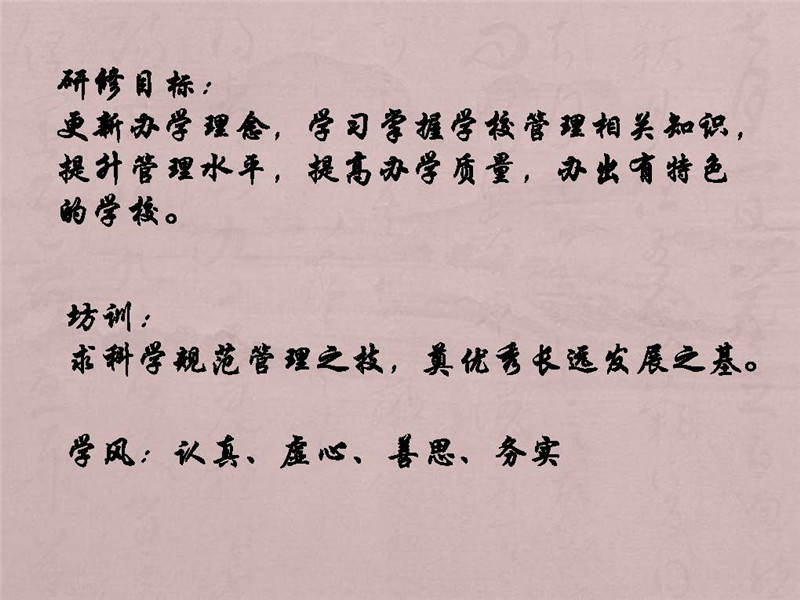 研修目标：
更新办学理念，学习掌握学校管理相关知识，
提升管理水平，提高办学质量，办出有特色
的学校。
坊训：
求科学规范管理之技，奠优秀长远发展之基。
学风：认真、虚心、善思、务实